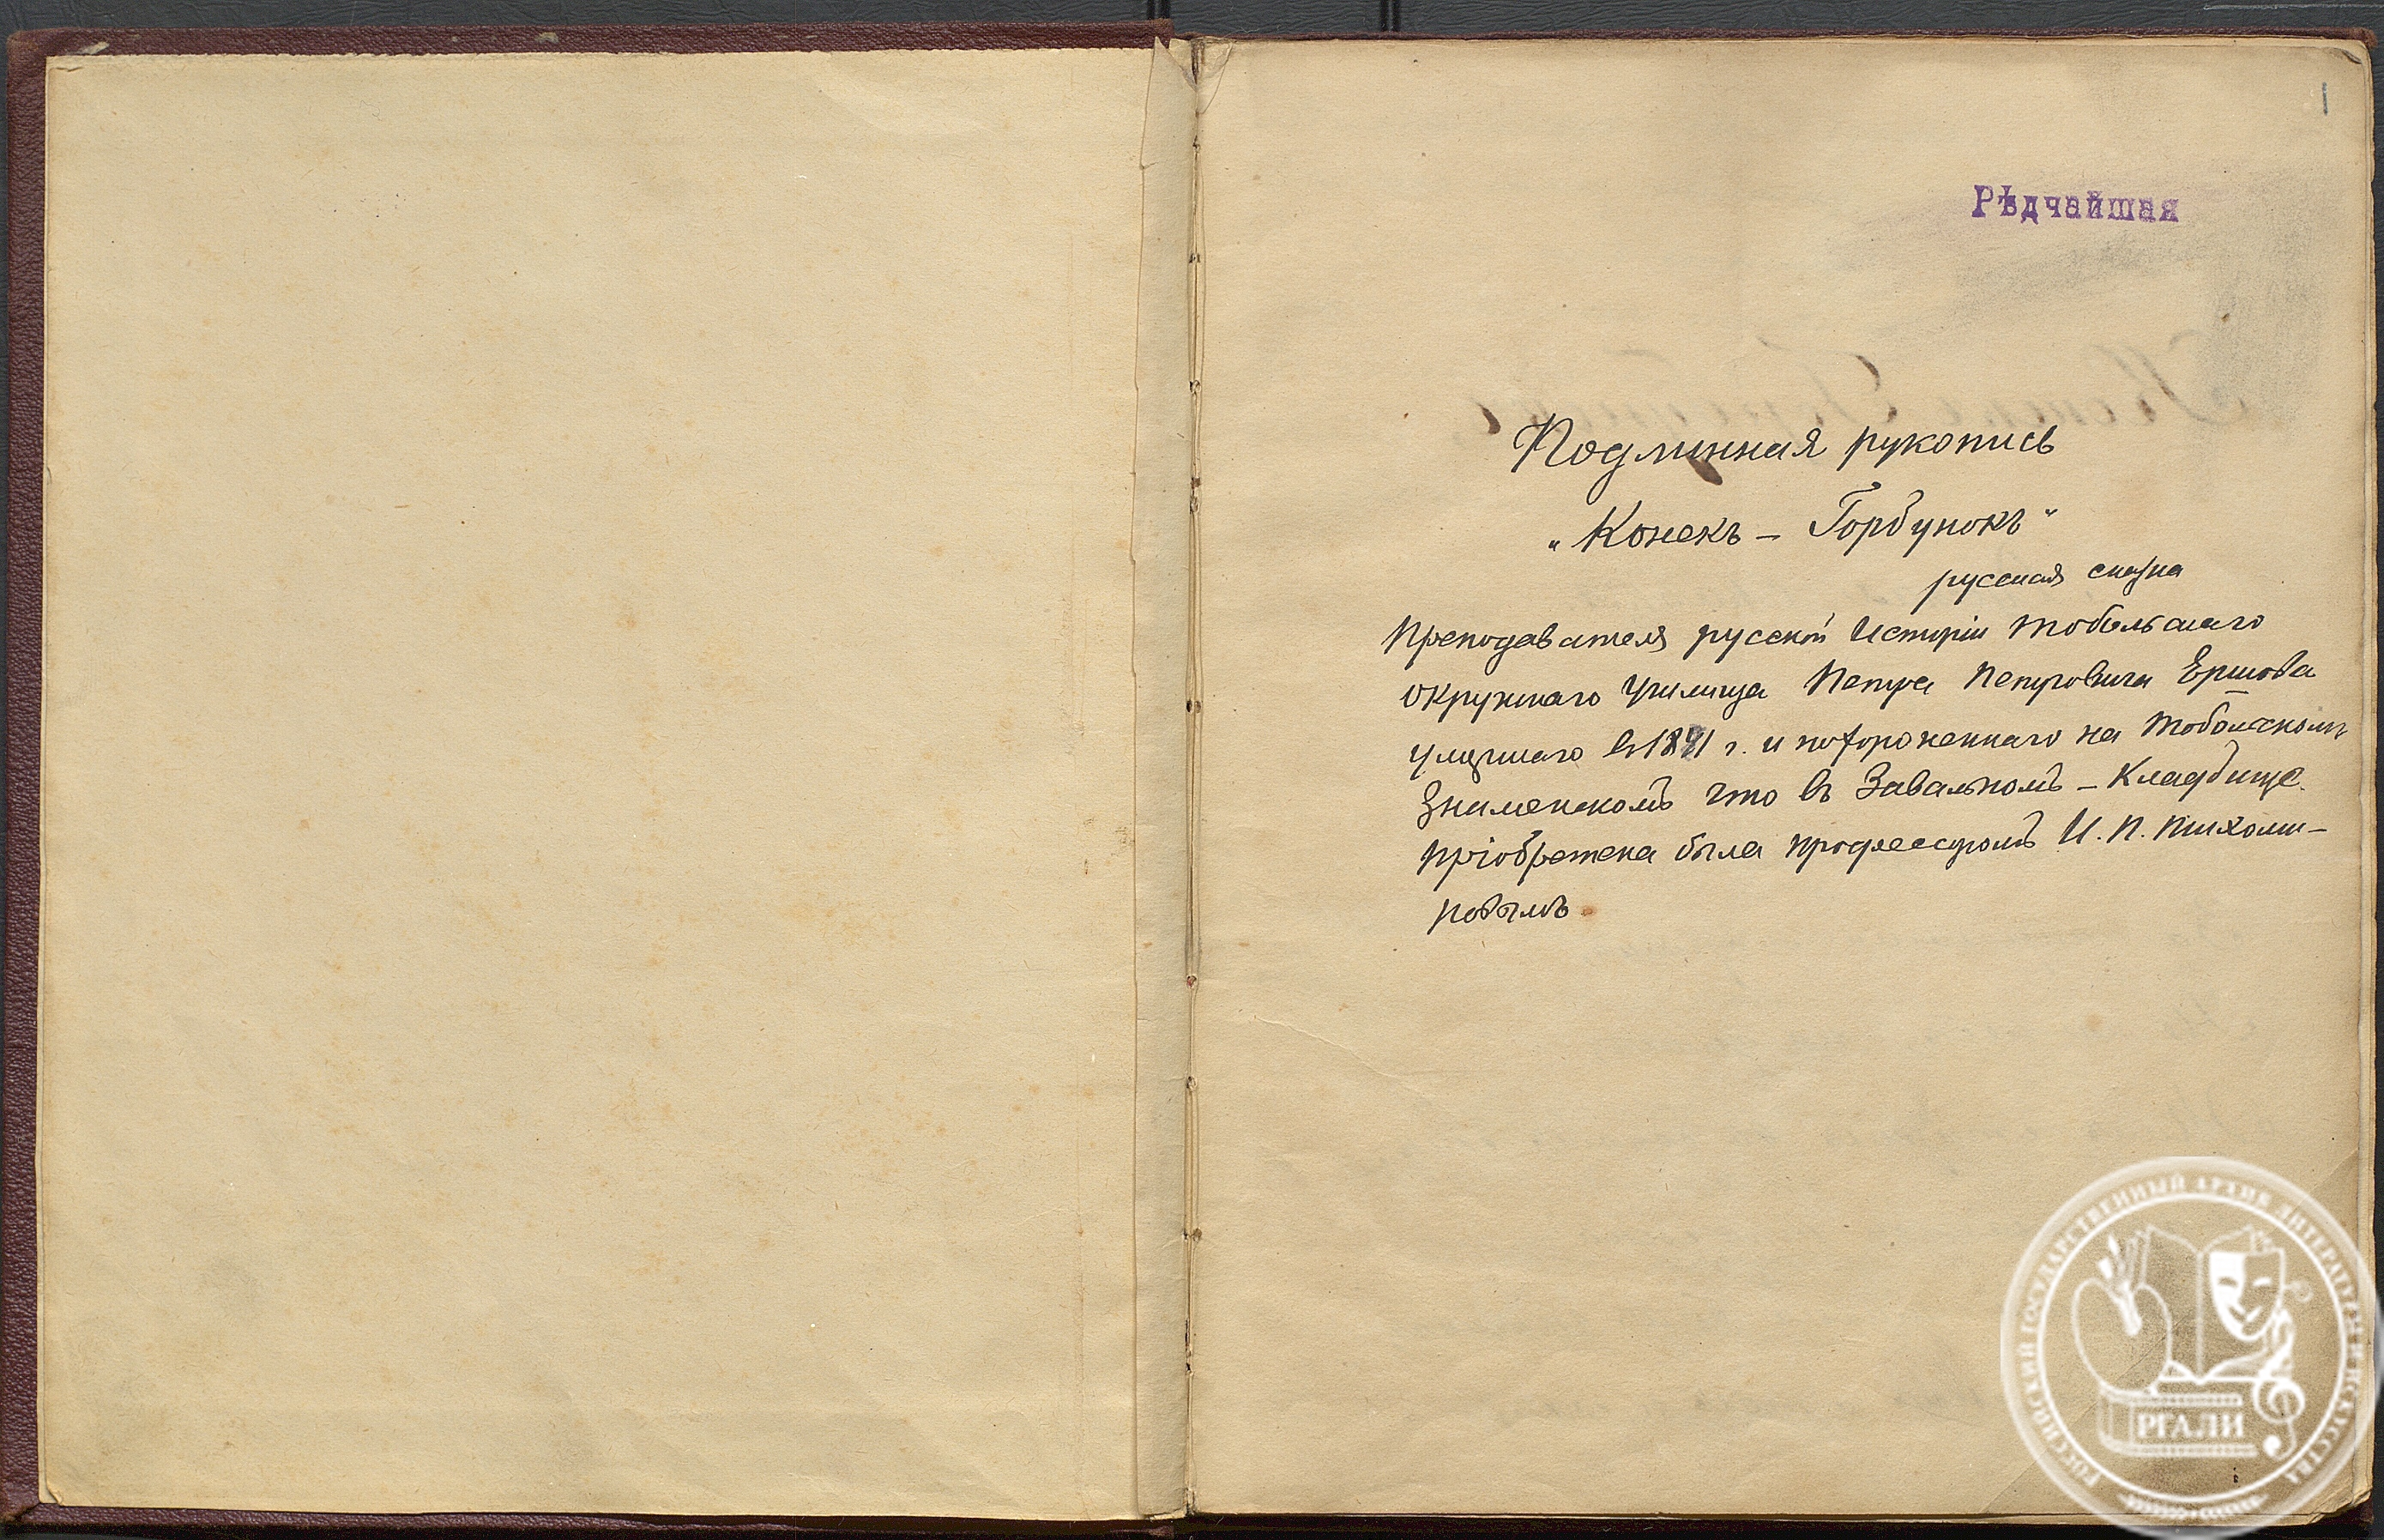 1
Рѣдчайшая
Подлинная рукопись
„Конекъ – Горбунокъ"
русская сказка
Преподавателя русской Исторіи Тобольскаго
Окружнаго Училища Петра Петровича Ершова
умершаго въ 1871 г. и похороненнаго на Тобольскомъ
Знаменскомъ что въ Завальномъ – Кладбище.
Пріобретена была профессоромъ И. П. Тихоми–
ровымъ
РОССИЙСКИЙ ГОСУДАРСТВЕННЫЙ АРХИВ ЛИТЕРАТУРЫ И ИСКУССТВА
РГАЛИ